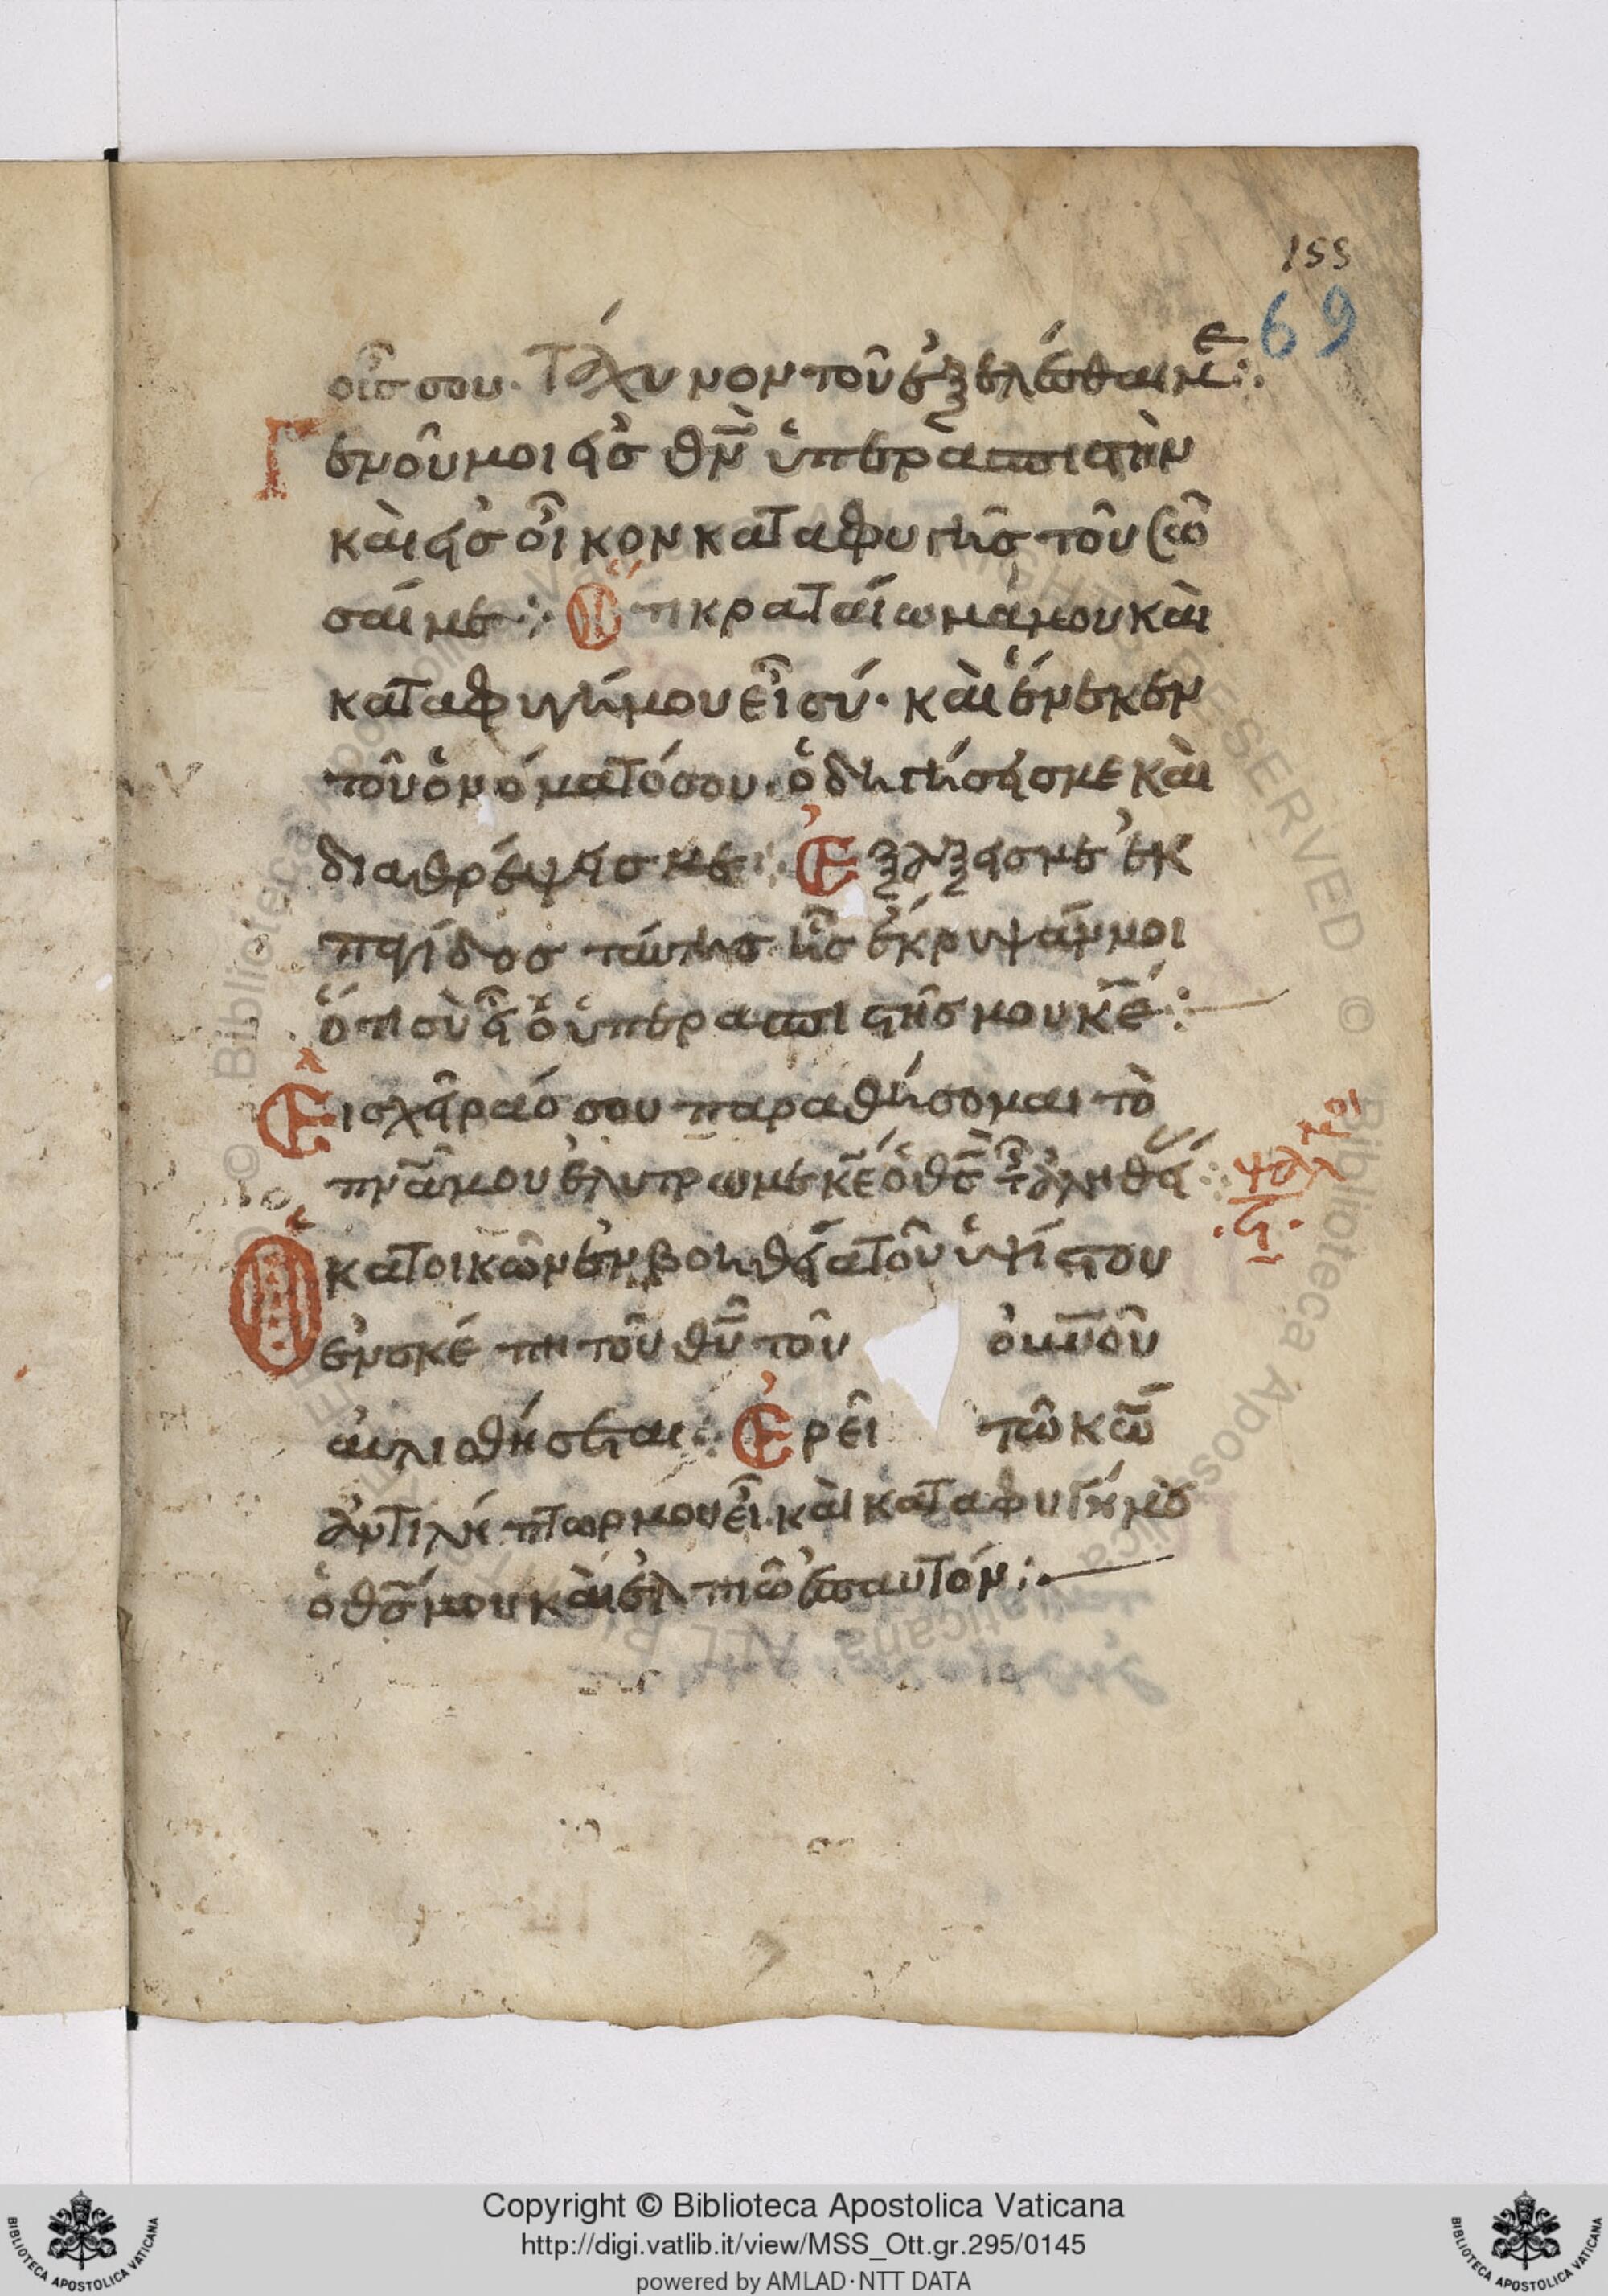 155
69
οῦς σου· Τάχυνον τοῦ ἐξελέσθαι με:·
Γενοῦ μοι εἰς θν̄ ὑπερασπιστὴν
καὶ εἰς οἶκον καταφυγῆς τοῦ σῶ
σαί με:· Ὅτι κραταίωμά μου καὶ
καταφυγή μου εἶ σύ· καὶ ἕνεκεν
τοῦ ὀνόματός σου· ὁδηγήσεις με καὶ
διαθρέψεις με:· Ἐξάξεις με ἐκ
παγίδος ταύτης ἧς ἔκρυψάν μοι
ὅτι σὺ εἶ ὁ ὑπερασπιστής μου κ̄ε:
Εἰς χεῖράς σου παραθήσομαι τὸ
πν̄ά μου ἐλυτρώσω με κ̄ε ὁ θς̄ τῆς ἀληθείας:
ψαλμὸς
·ϟ·
Ὁ κατοικῶν ἐν βοηθεία τοῦ ὑψίστου
ἐν σκέπη τοῦ θῡ τοῦ οὐνοῦ
αὐλισθήσεται:· Ἐρεῖ τῶ κω̄
ἀντιλήπτωρ μου εἶ καὶ καταφυγή μου
ὁ θς̄ μου καὶ ἐλπιῶ ἐπ αυτόν:·
Copyright © Biblioteca Apostolica Vaticana
http://digi.vatlib.it/view/MSS_Ott.gr.295/0145
powered by AMLAD·NTT DATA